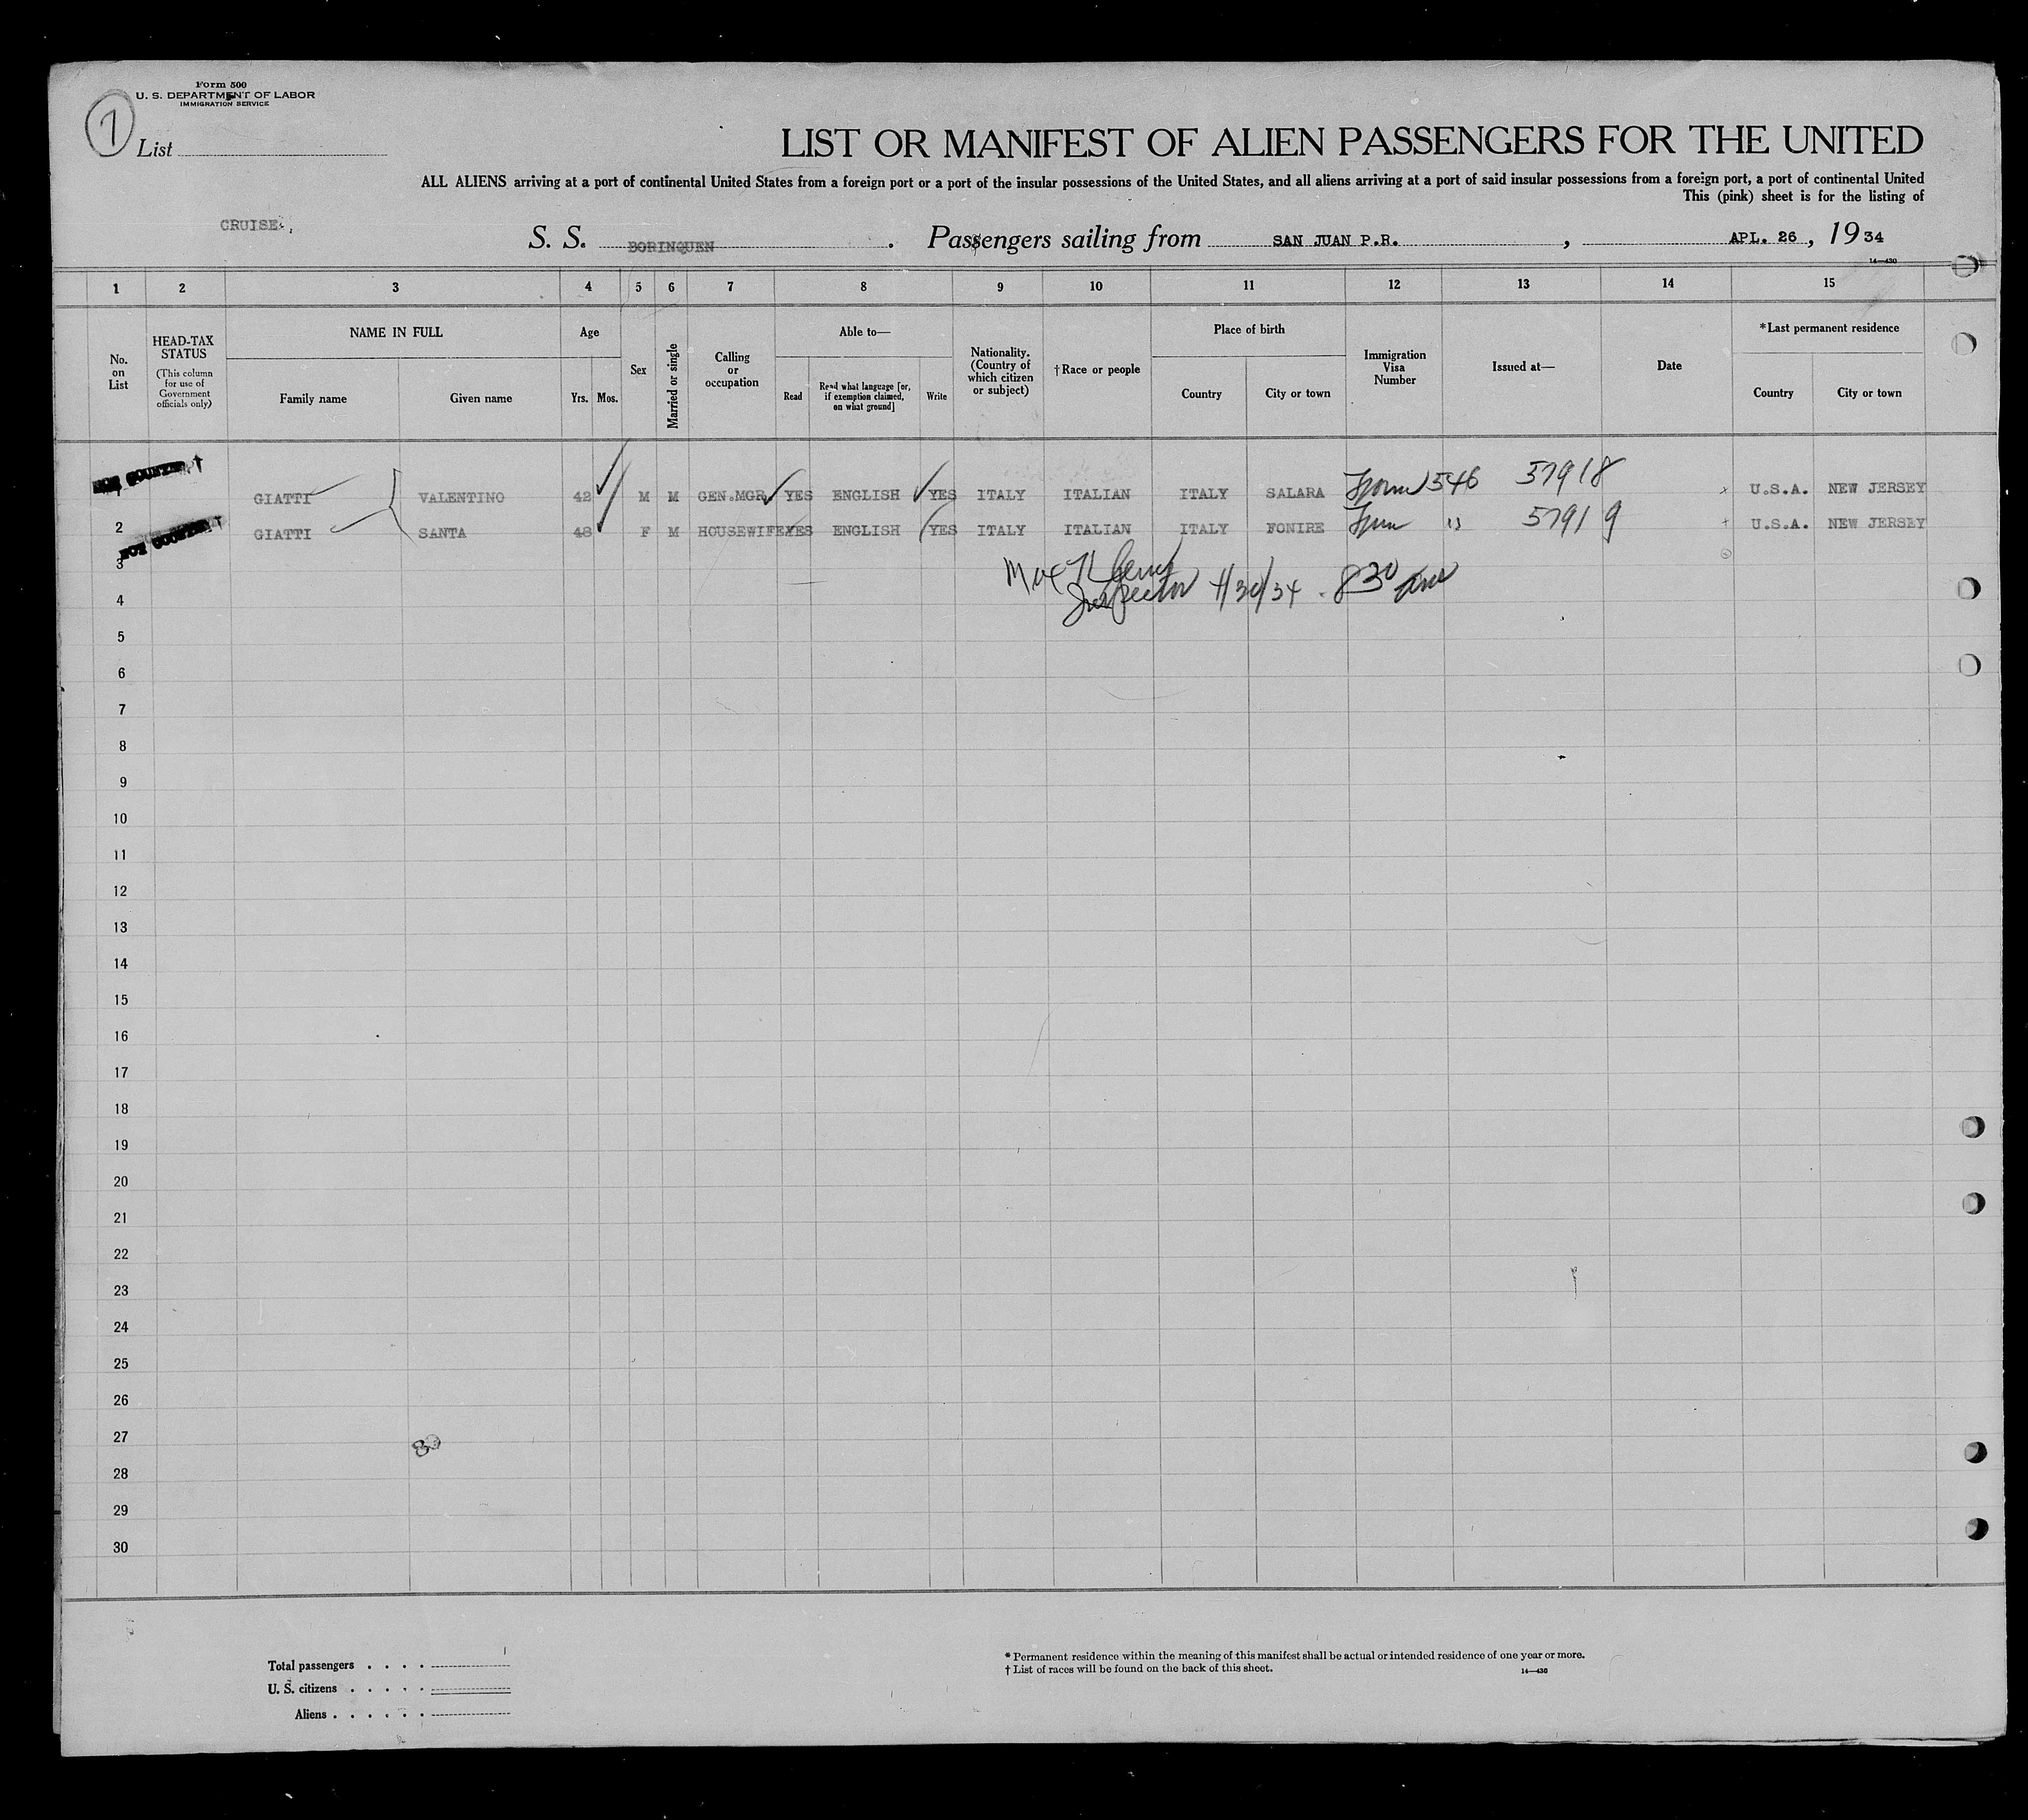 Form 500
U. S. DEPARTMENT OF LABOR
IMMIGRATION SERVICE
List
LIST OR MANIFEST OF ALIEN PASSENGERS FOR THE UNITED
ALL ALIENS arriving at a port of continental United States from a foreign port or a port of the insular possessions of the United States, and all aliens arriving at a port of said insular possessions from a foreign port, a port of continental United
This (pink) sheet is for the listing of
CRUISE
S. S. BORINQUEN . Passengers sailing from SAN JUAN P.R. , APL. 26, 1934
14—430
1 2 3 4 5 6 7 8 9 10 11 12 13 14 15
No. on List
HEAD-TAX STATUS (This column for use of Government officials only)
NAME IN FULL
Family name Given name
Age
Yrs. Mos.
Sex
Married or single
Calling or occupation
Able to—
Read Read what language [or, if exemption claimed, on what ground] Write
Nationality. (Country of which citizen or subject)
†Race or people
Place of birth
Country City or town
Immigration Visa Number
Issued at—
Date
*Last permanent residence
Country City or town
GIATTI VALENTINO 42 M M GEN.MGR. YES ENGLISH YES ITALY ITALIAN ITALY SALARA Form 546 57918 U.S.A. NEW JERSEY
2 GIATTI SANTA 48 F M HOUSEWIFE YES ENGLISH YES ITALY ITALIAN ITALY FONIRE Form " 57919 U.S.A. NEW JERSEY
3
Inspector 4/30/34 8 30 am
4
5
6
7
8
9
10
11
12
13
14
15
16
17
18
19
20
21
22
23
24
25
26
27
28
29
30
Total passengers . . . .
U. S. citizens . . . . .
Aliens . . . . . .
* Permanent residence within the meaning of this manifest shall be actual or intended residence of one year or more.
† List of races will be found on the back of this sheet.
14—430